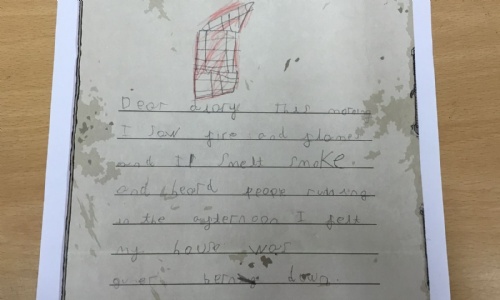 Dear diary This morn
I saw fire and flame
and I smelt smoke.
and heard peope running
in the afternoon I felt
my house was
down.